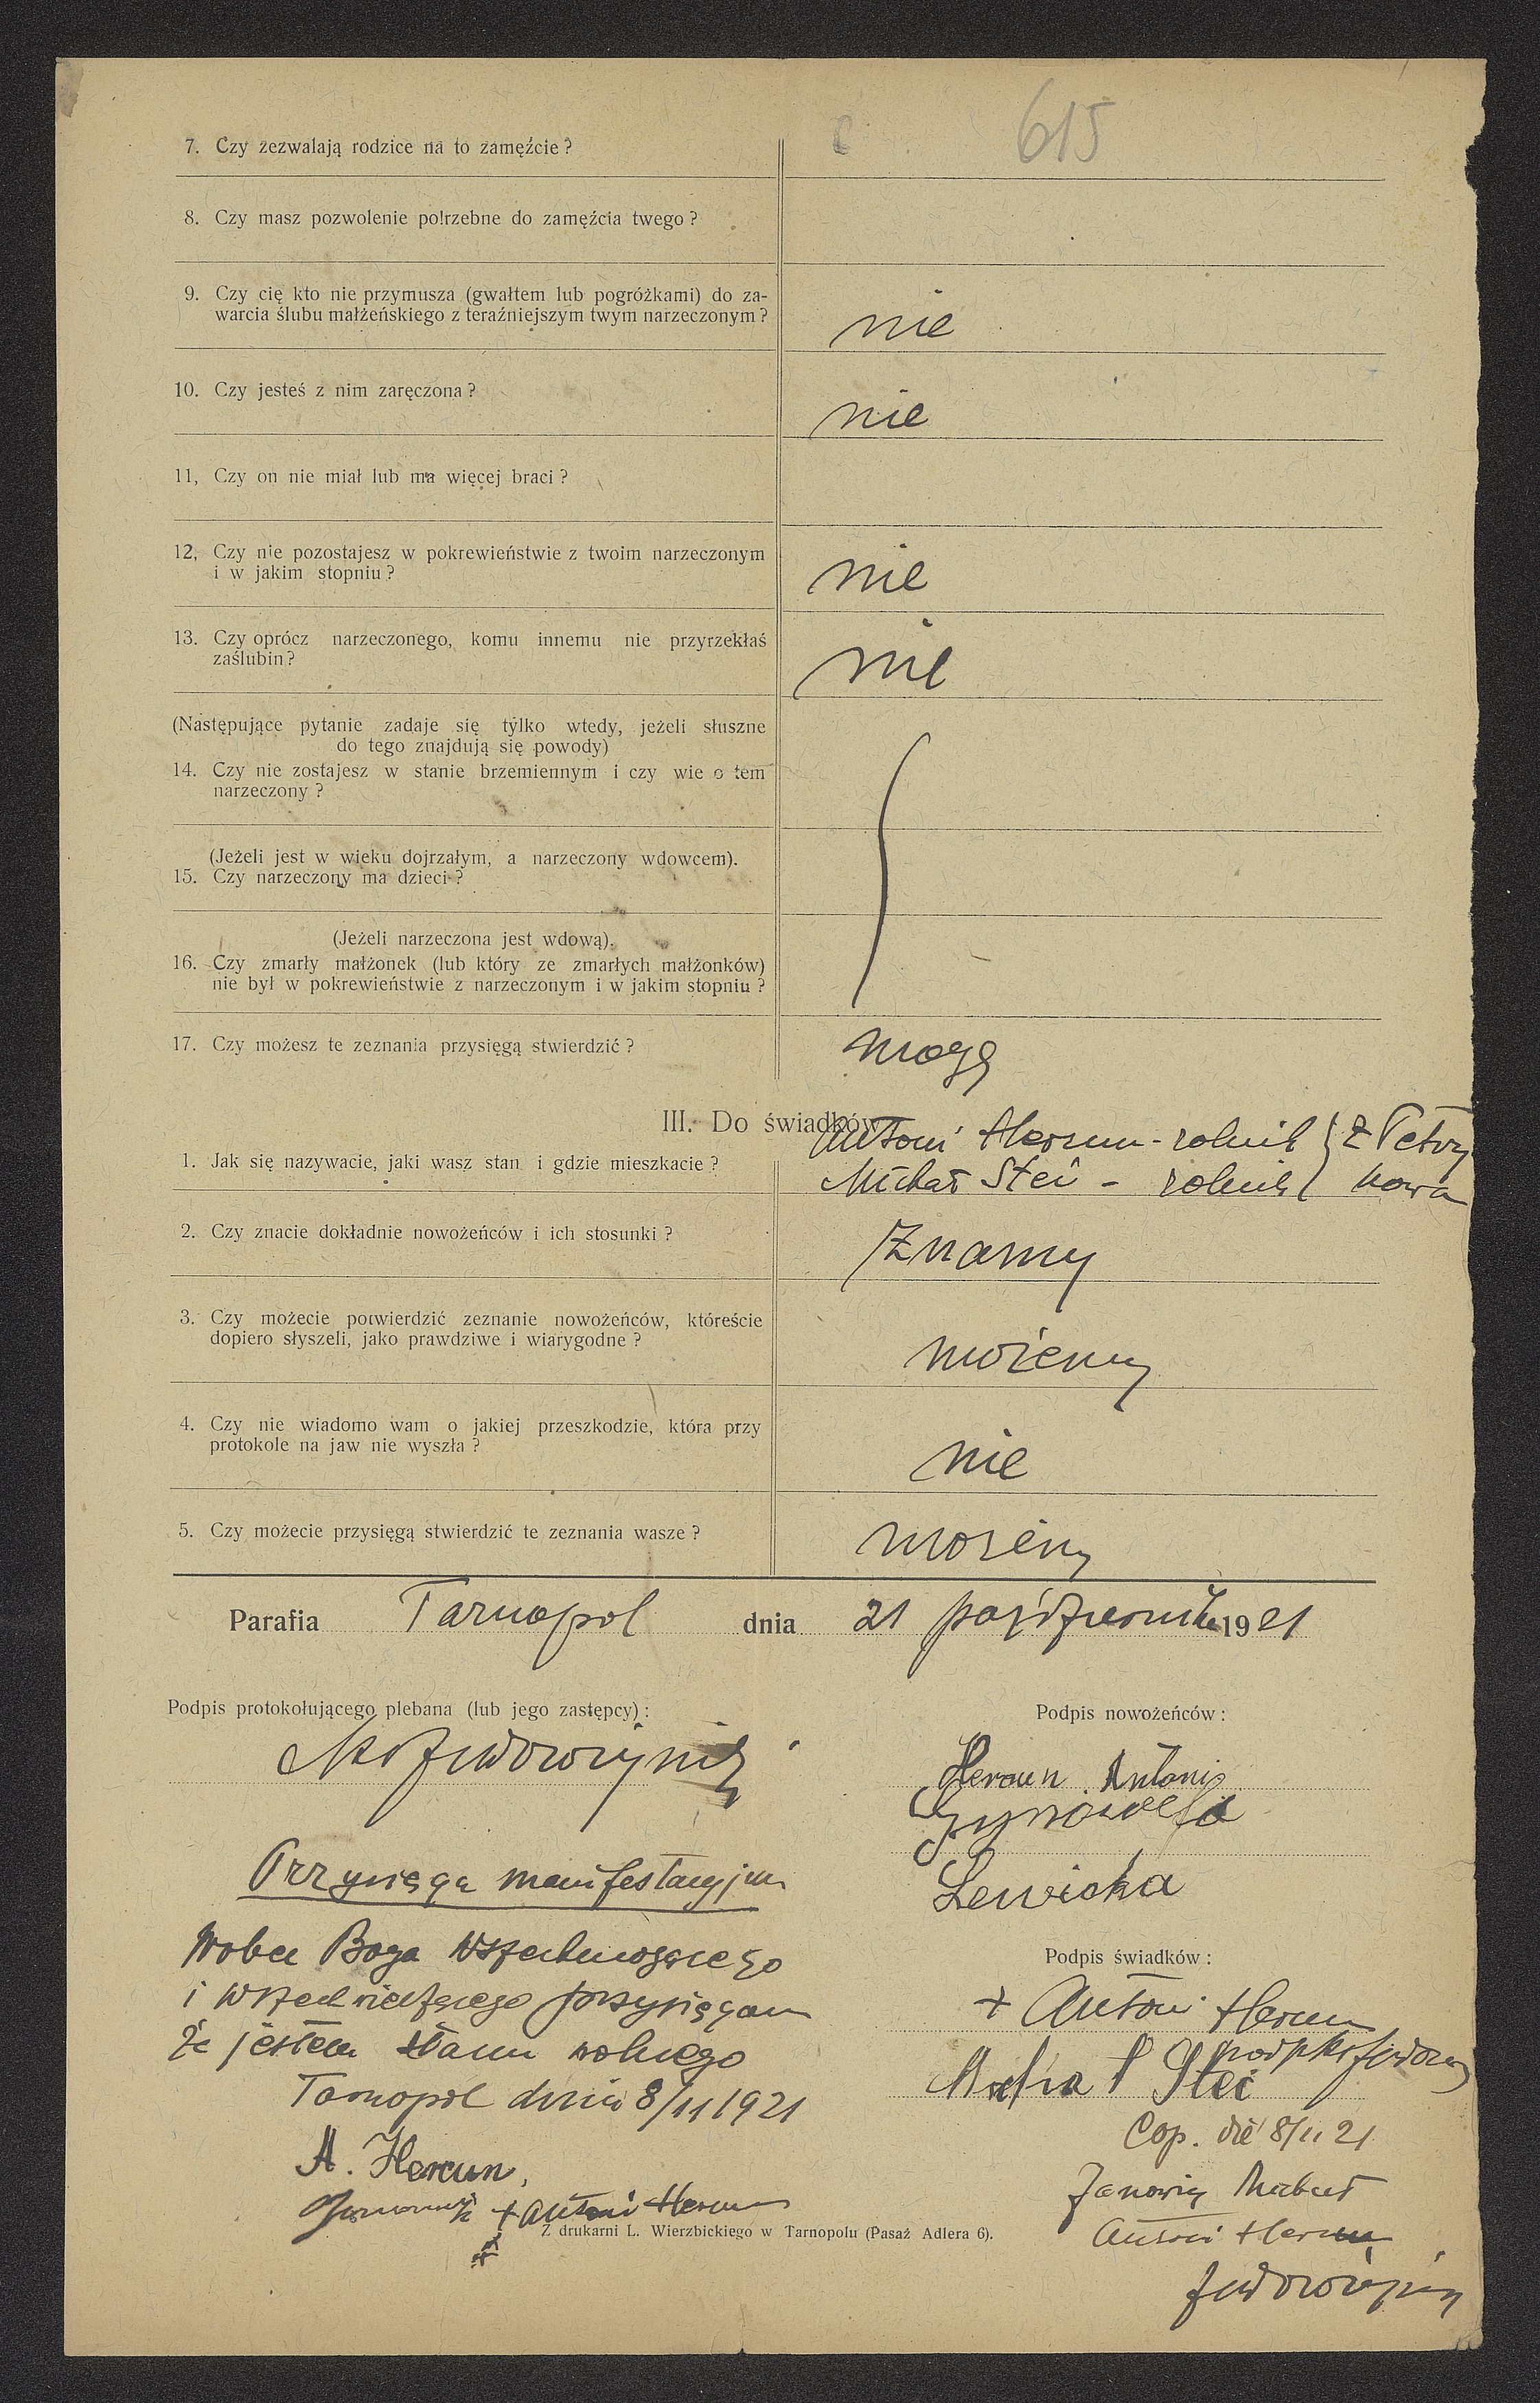 615
7. Czy zezwalają rodzice na to zamęźcie?
8. Czy masz pozwolenie potrzebne do zamęźcia twego?
9. Czy cię kto nie przymusza (gwałtem lub pogróżkami) do za-
warcia ślubu małżeńskiego z teraźniejszym twym narzeczonym?
nie
10. Czy jesteś z nim zaręczona?
nie
11, Czy on nie miał lub ma więcej braci?
12, Czy nie pozostajesz w pokrewieństwie z twoim narzeczonym
i w jakim stopniu?
nie
13. Czy oprócz narzeczonego, komu innemu nie przyrzekłaś
zaślubin?
nie
(Następujące pytanie zadaje się tylko wtedy, jeżeli słuszne
do tego znajdują się powody)
14. Czy nie zostajesz w stanie brzemiennym i czy wie o tem
narzeczony?
(Jeżeli jest w wieku dojrzałym, a narzeczony wdowcem).
15. Czy narzeczony ma dzieci?
(Jeżeli narzeczona jest wdową).
16. Czy zmarły małżonek (lub który ze zmarłych małżonków)
nie był w pokrewieństwie z narzeczonym i w jakim stopniu?
17. Czy możesz te zeznania przysięgą stwierdzić?
mogę
III. Do świadków
1. Jak się nazywacie, jaki wasz stan i gdzie mieszkacie?
Antoni Hercun - rolnik
Michał Steć - rolnik
2. Czy znacie dokładnie nowożeńców i ich stosunki?
Znamy
3. Czy możecie potwierdzić zeznanie nowożeńców, któreście
dopiero słyszeli, jako prawdziwe i wiarygodne?
możemy
4. Czy nie wiadomo wam o jakiej przeszkodzie, która przy
protokole na jaw nie wyszła?
nie
5. Czy możecie przysięgą stwierdzić te zeznania wasze?
możemy
Parafia Tarnopol dnia 21 października 1921
Podpis protokołującego plebana (lub jego zastępcy):
Podpis nowożeńców:
Hercun Antoni
Lewicka
Przysięga manifestacyjna
Wobec Boga Wszechmogącego
i Wszechwiedzącego przysięgam
że jestem stanu wolnego
Tarnopol dnia 8/11 1921
A. Hercun
+ Antoni Hercun
Podpis świadków:
+ Antoni Hercun
Steć
Cop. die 8/11 21
Antoni Hercun
Z drukarni L. Wierzbickiego w Tarnopolu (Pasaż Adlera 6).